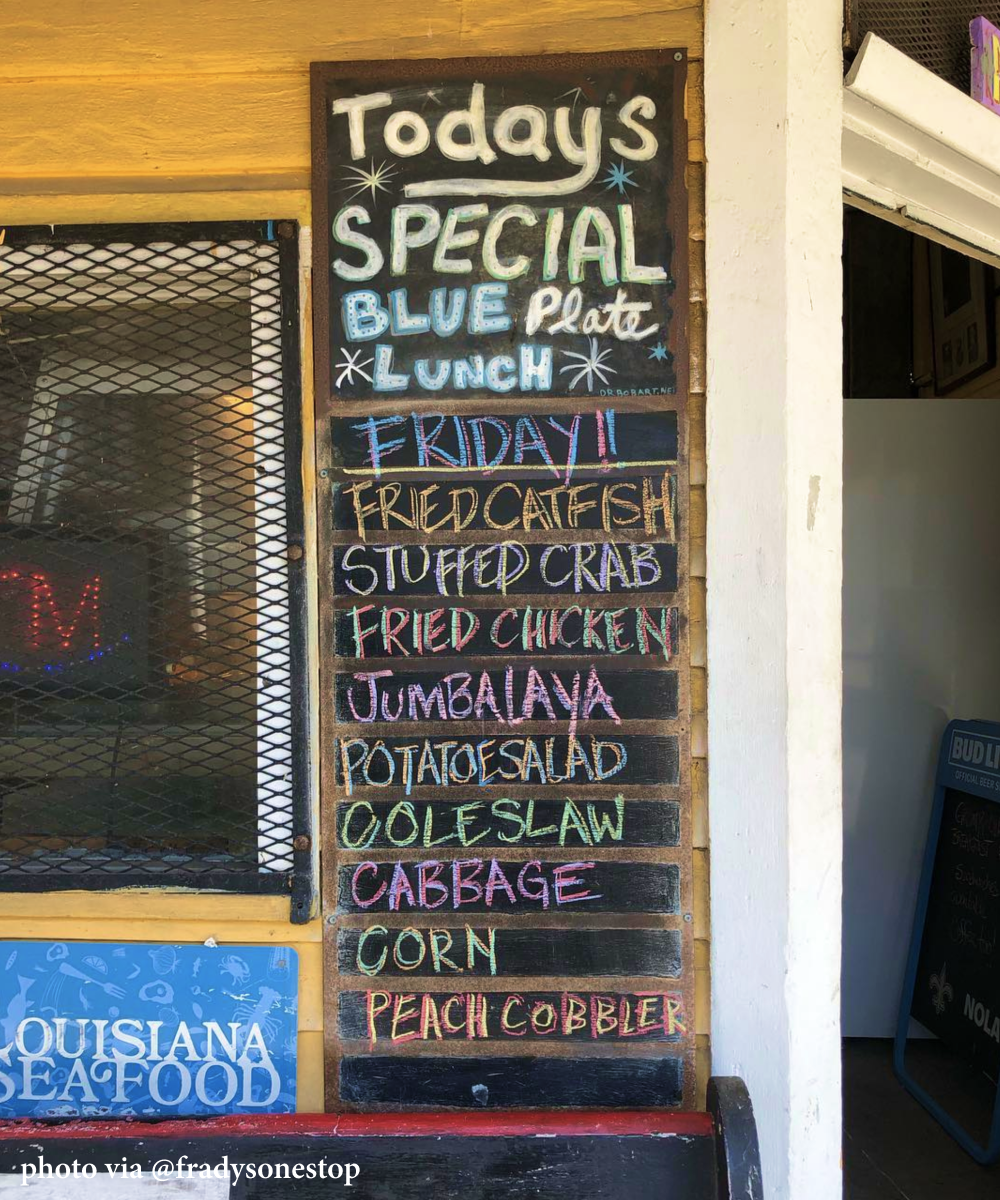 Todays
SPECIAL
BLUE Plate
LUNCH
DRBOBART.NET
FRIDAY!!
FRIED CATFISH
STUFFED CRAB
FRIED CHICKEN
JUMBALAYA
POTATOESALAD
COLESLAW
CABBAGE
CORN
PEACH COBBLER
LOUISIANA
SEAFOOD
BUD LI
OFFICIAL BEER
NOLA
photo via @fradysonestop